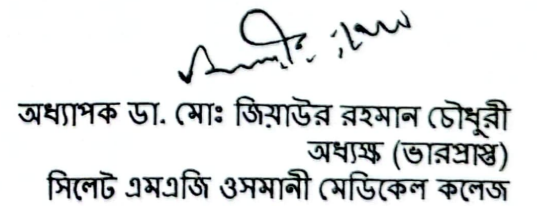 অধ্যাপক ডা. মোঃ জিয়াউর রহমান চৌধুরী
অধ্যক্ষ (ভারপ্রাপ্ত)
সিলেট এমএজি ওসমানী মেডিকেল কলেজ